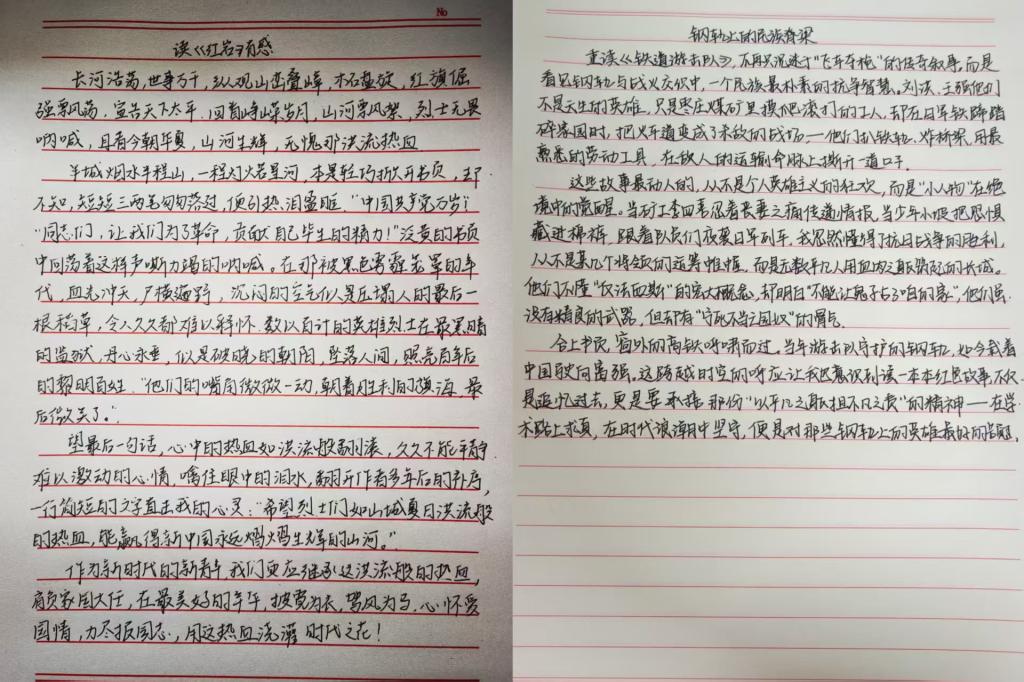 No
读《红岩》有感
长河浩荡,世事万千,纵观山峦叠嶂,木石盘旋,红旗倔
强票风荡,宣告天下太平,回首峥嵘岁月,山河票风絮,烈士无畏
呐喊,且看今朝华夏,山河生辉,无愧那洪流热血
半城烟水半程山,一程灯火若星河,本是轻巧掀开书页,却
不知,短短三两笔匆匆落过,便引热泪盈眶."中国共产党万岁!"
"同志们,让我们为了革命,贡献自己毕生的精力!"泛黄的书页
中回荡着这样声嘶力竭的呐喊。在那被黑色雾霾笼罩的年
代,血光冲天,尸横遍野,沉闷的空气似是压塌人的最后一
根稻草,令人久久都难以释怀.数以百计的英雄烈士在最黑暗
的监狱,丹心永垂,似是破晓的朝阳,坠落人间,照亮百年后
的黎明百姓."他们的嘴角微微一动,朝着胜利的旗海,最
后微笑了."
望最后一句话,心中的热血如洪流般翻滚,久久不能平静.
难以激动的心情,噙住眼中的泪水,翻开作者多年后的补序,
一行简短的文字直击我的心灵:"希望烈士们如山城夏日洪流般
的热血,能赢得新中国永远熠熠生辉的山河。"
作为新时代的新青年,我们更应继承这洪流般的热血,
肩负家国大任,在最美好的年华,披荒为衣,驾风为马,心怀爱
国情,力尽报国志,用这热血浇灌时代之花!
钢轨上的民族脊梁
重读《铁道游击队》,不再只沉迷于"飞车夺枪"的传奇叙事,而是
看见钢轨与战火交织中,一个民族最朴素的抗争智慧.刘洪、王强他们
不是天生的英雄,只是枣庄煤矿里摸爬滚打的工人,却在日军铁蹄踏
碎家园时,把火车道变成了末敌的战场——他们扒铁轨、炸桥梁,用最
熟悉的劳动工具,在敌人的运输命脉上撕开一道口子。
这些故事最动人的,从不是个人英雄主义的狂欢,而是"小人物"在绝
境中的觉醒。当芳林嫂忍着丧妻之痛传递情报,当少年小坡把恐惧
藏进棉裤,跟着队员们夜袭日军列车,我忽然懂得了抗日战争的胜利,
从不是某几个将领的运筹帷幄,而是无数平凡人用血肉之躯筑起的长城。
他们不懂"反法西斯"的宏大概念,却明白"不能让鬼子占了咱的家",他们虽
没有精良的武器,但却有"宁死不当亡国奴"的骨气.
合上书页,窗外的高铁呼啸而过。当年游击队守护的钢轨,如今载着
中国驶向富强。这跨越时空的呼应让我意识到读一本本红色故事不仅
是追忆过去,更是要承接那份"以平凡之躯担不凡之责"的精神——在学
术路上求真,在时代浪潮中坚守,便是对那些钢轨上的英雄最好的告慰.